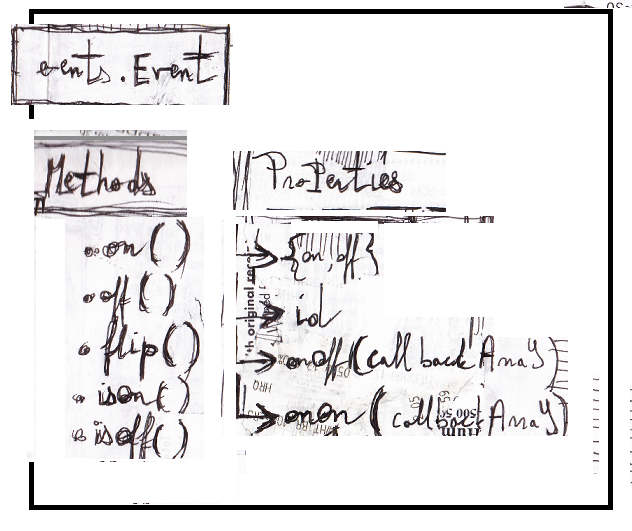 events.Event
Methods
.on()
.off()
.flip()
.ison()
.isoff()
Properties
{on,off}
id
onoff(callbackArray)
onon(callbackArray)